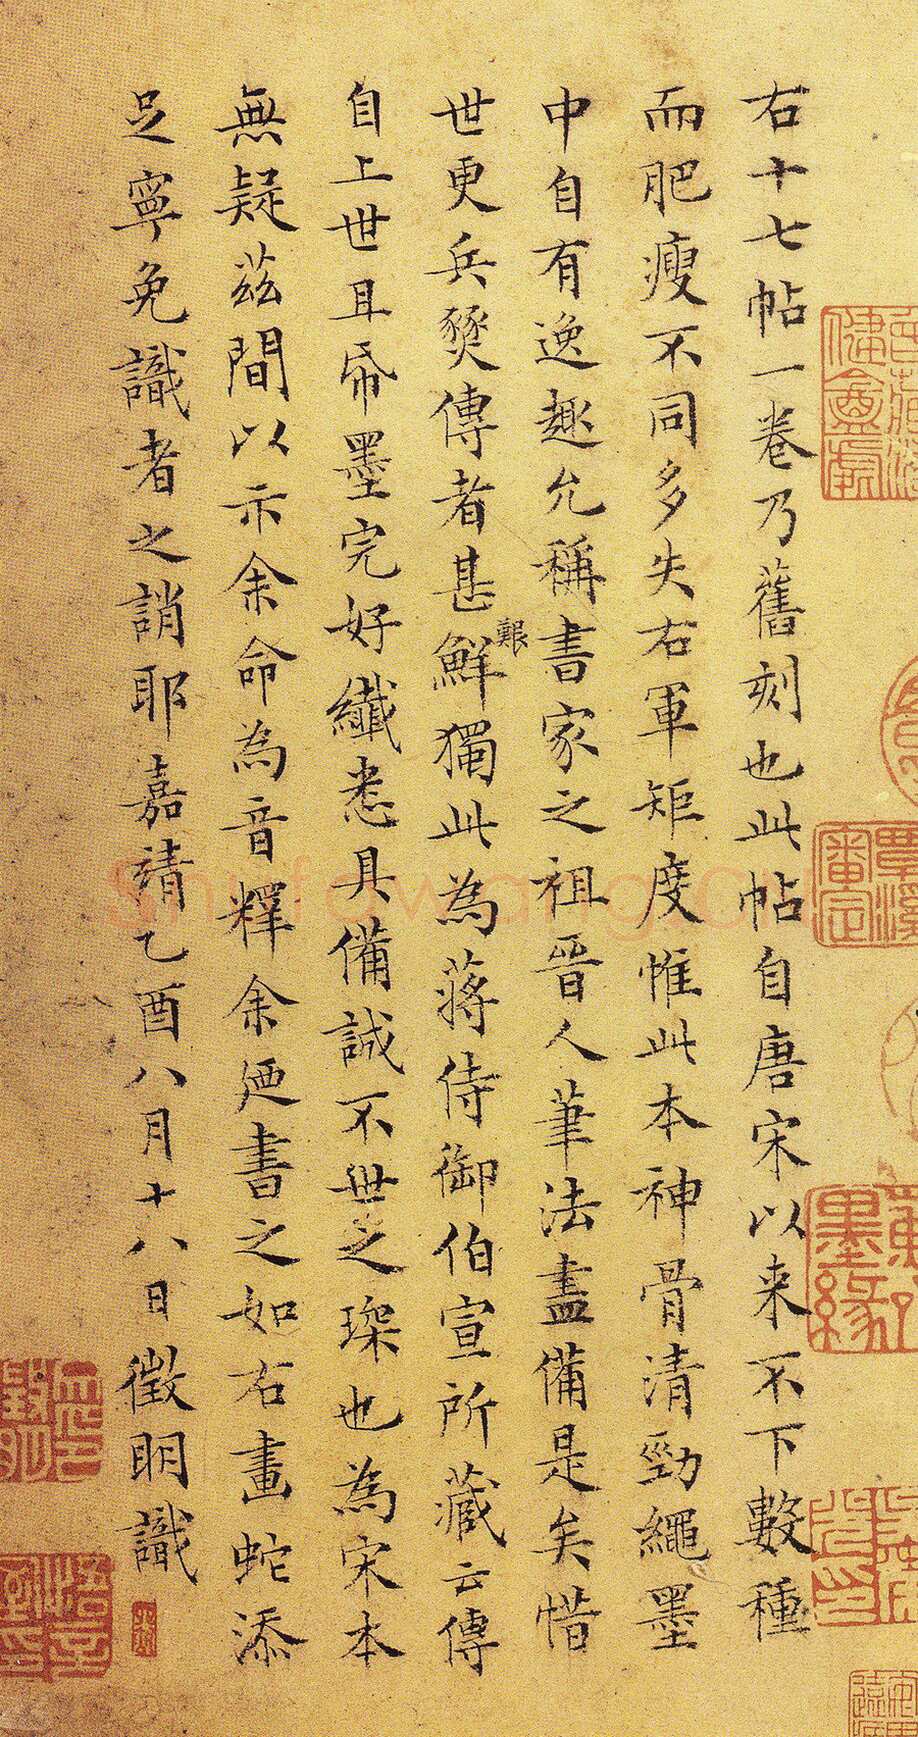 右十七帖一卷乃舊刻也此帖自唐宋以来不下數種
而肥瘦不同多失右軍矩度惟此本神骨清勁繩墨
中自有逸趣允稱書家之祖晉人筆法盡備是矣惜
世更兵燹傳者甚鮮獨此為蔣侍御伯宣所藏云傳
艱
自上世且帋墨完好纖悉具備誠不世之琛也為宋本
無疑茲間以示余命為音釋余廼書之如右畫蛇添
足寧免識者之誚耶嘉靖乙酉八月十八日徵明識
覃溪
審定
墨緣